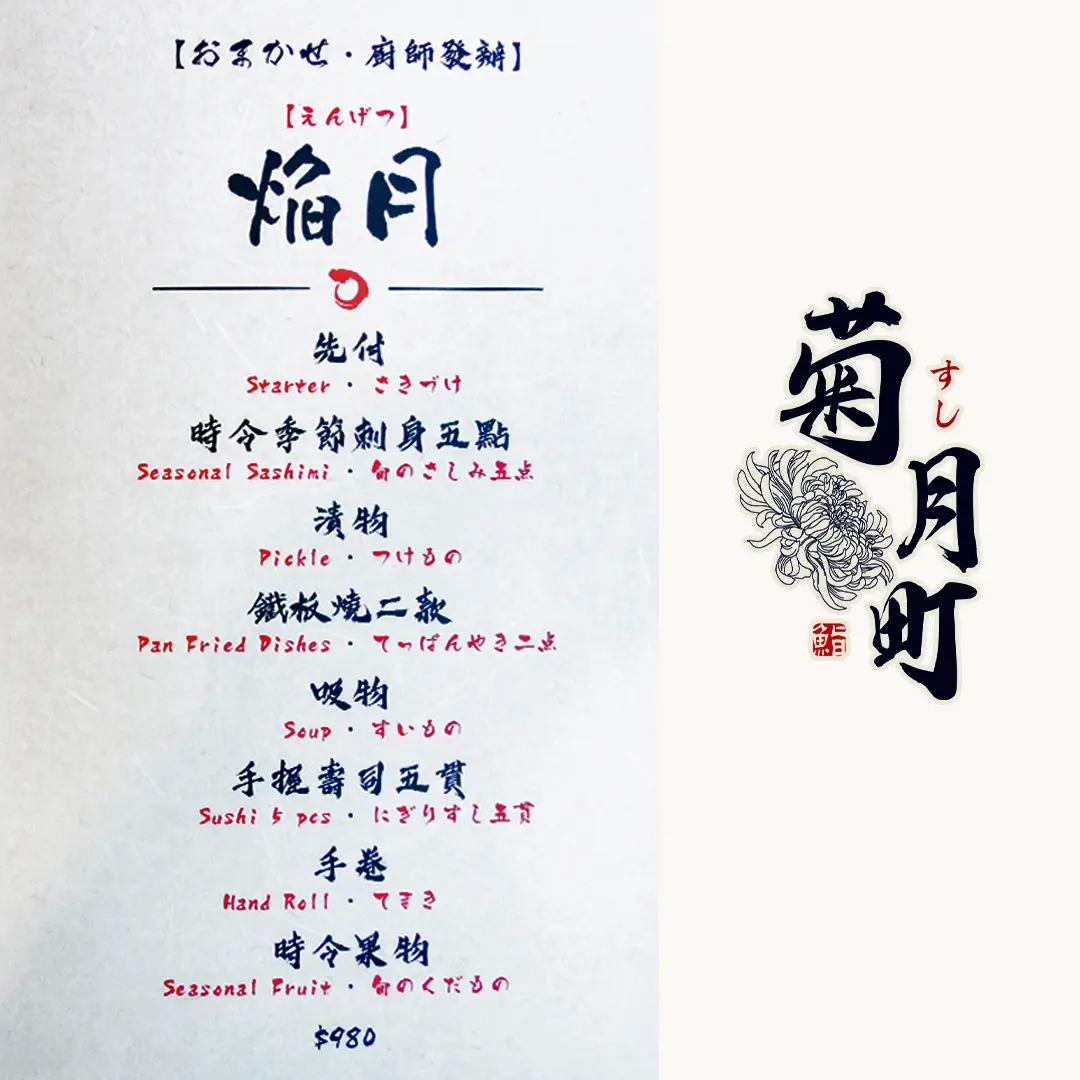 【おまかせ・廚師發辦】
【えんげつ】
焔月
先付
Starter・さきづけ
時令季節刺身五點
Seasonal Sashimi・旬のさしみ五点
漬物
Pickle・つけもの
鐵板燒二款
Pan Fried Dishes・てっぱんやき二点
吸物
Soup・すいもの
手握壽司五貫
Sushi 5 pcs・にぎりすし五貫
手卷
Hand Roll・てまき
時令果物
Seasonal Fruit・旬のくだもの
$980
菊月町
すし
鮨